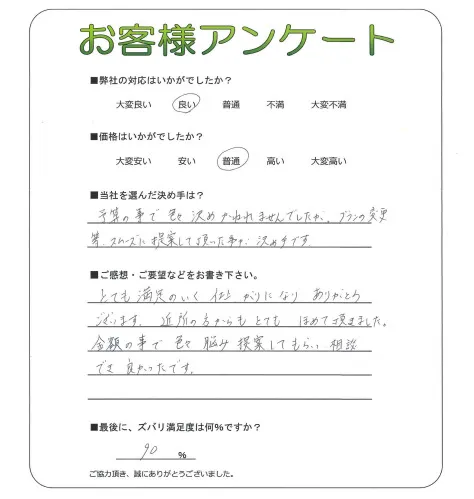 お客様アンケート
■弊社の対応はいかがでしたか?
大変良い 良い 普通 不満 大変不満
■価格はいかがでしたか?
大変安い 安い 普通 高い 大変高い
■当社を選んだ決め手は?
予算の事で色々決めかねれませんでしたが、プランの変更
等、スムーズに提案して頂いた事が決め手です。
■ご感想・ご要望などをお書き下さい。
とても満足のいく仕上がりになりありがとう
ございます。近所の方からもとてもほめて頂きました。
金額の事で色々脳み提案してもらい相談
でき良かったです。
■最後に、ズバリ満足度は何%ですか?
90 %
ご協力頂き、誠にありがとうございました。